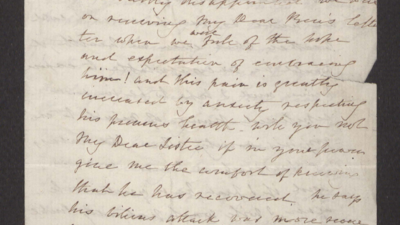 on receiving My Dear Pierre's Letter
ter when we were full of the hope
and expectation of embracing
him! and this pain is greatly
increased by anxiety respecting
his precious health. will you not
My Dear Sister if in your power
give me the comfort of knowing
that he has recovered, he says
his bilious attack was more severe